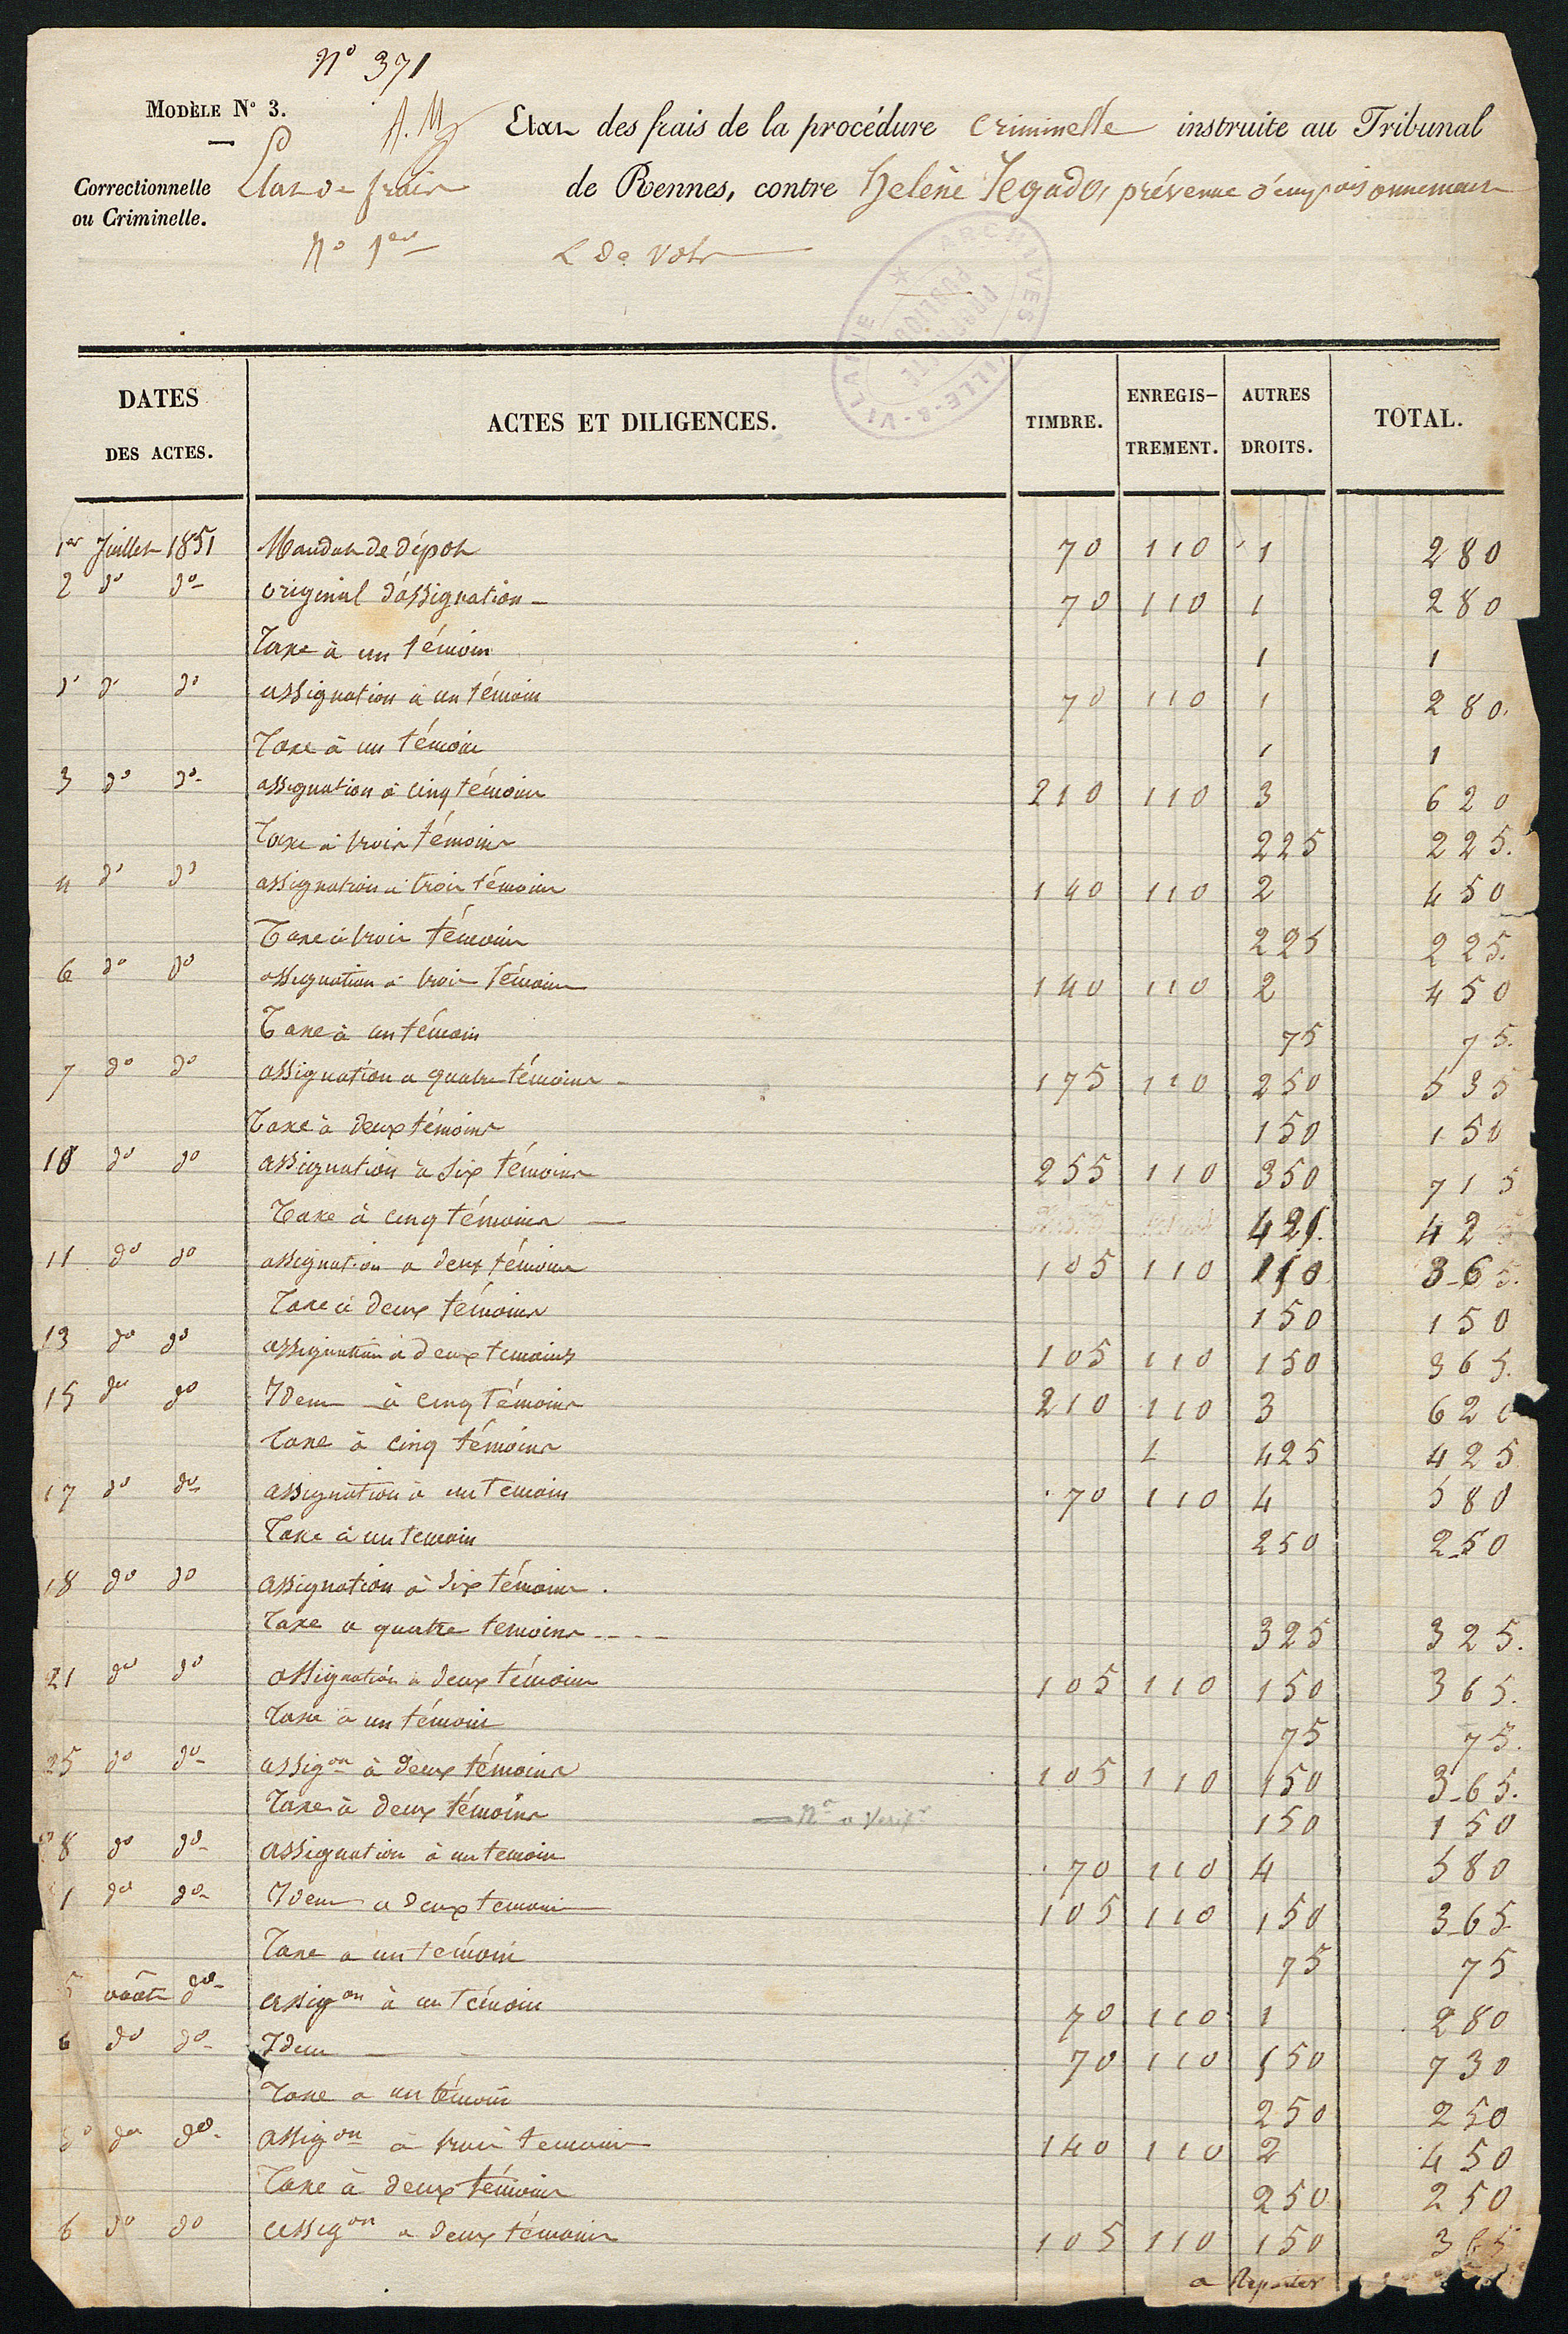 N° 371
MODÈLE N° 3.
A. M
Etat des frais de la procédure criminelle instruite au Tribunal
Correctionnelle
ou Criminelle.
Etat de frais
N° 1er
de Rennes, contre Helène Jegado, prévenue d'empoisonnement
& de vols
ARCHIVES ILLE-&-VILAINE
PROPRIÉTÉ PUBLIQUE
DATES DES ACTES. ACTES ET DILIGENCES. TIMBRE. ENREGIS-TREMENT. AUTRES DROITS. TOTAL.
1er Juillet 1851 Mandat de dépot 70 110 1 280
2 do do original d'assignation 70 110 1 280
Taxe à un témoin 1 1
do do do assignation à un témoin 70 110 1 280
Taxe à un témoin 1 1
3 do do assignation à cinq témoins 210 110 3 620
Taxe à trois témoins 225 225
4 do do assignation à trois témoins 140 110 2 450
Taxe à trois témoins 225 225
6 do do assignation à trois témoins 140 110 2 450
Taxe à un témoin 75 75
7 do do assignation a quatre témoins 175 110 250 535
Taxe à deux témoins 150 150
10 do do assignation à six témoins 255 110 350 715
Taxe à cinq témoins 425 42
11 do do assignation a deux témoins 105 110 150 365
Taxe à deux témoins 150 150
13 do do assignation à deux temoins 105 110 150 365
15 do do Idem à cinq témoins 210 110 3 620
Taxe à cinq témoins 425 425
17 do do assignation à un temoin 70 110 4 580
Taxe à un temoin 250 250
18 do do assignation à six témoins
Taxe a quatre temoins 325 325
21 do do assignation à deux témoins 105 110 150 365
Taxe à un témoin 75 75
25 do do assigon à deux témoins 105 110 150 365
Taxe à deux témoins 150 150
8 do do assignation à un temoin 70 110 4 580
1 do do Idem a deux temoins 105 110 150 365
Taxe a un temoin 75 75
5 août do assigon à un témoin 70 110 1 280
6 do do Idem 70 110 550 730
Taxe a un témoin 250 250
do do do assigon à trois temoins 140 110 2 450
Taxe à deux témoins 250 250
6 do do assigon a deux témoins 105 110 150 365
a Reporter